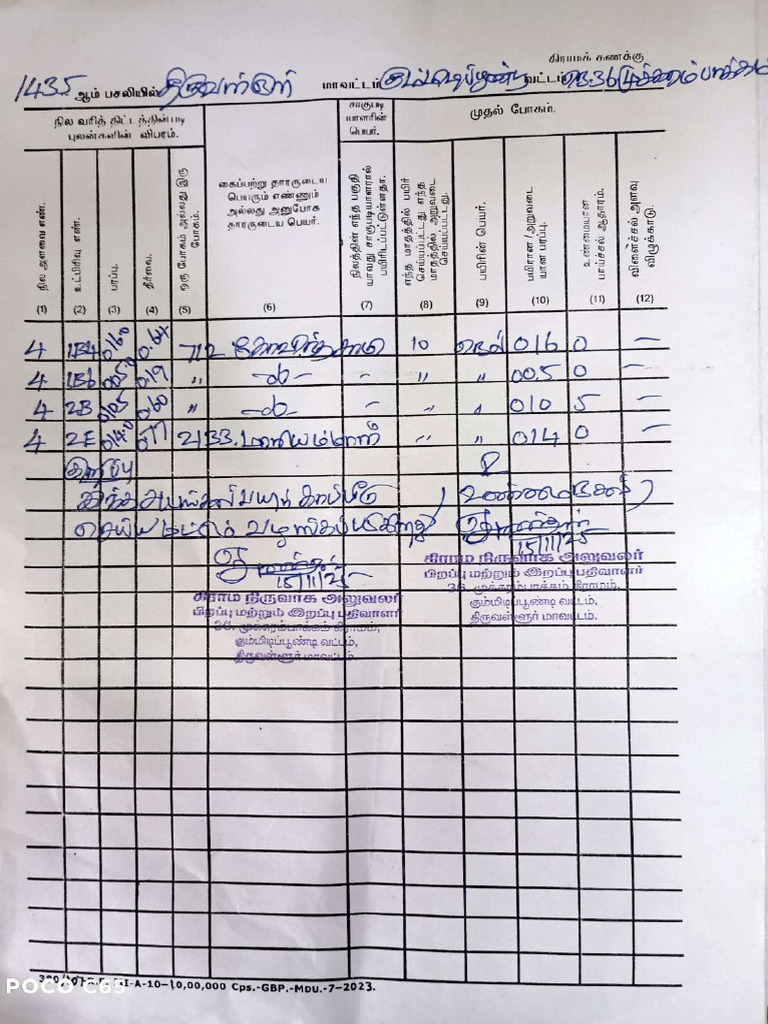 கிராமக் கணக்கு
1435 ஆம் பசலியில் திருவள்ளூர் மாவட்டம் கும்மிடிப்பூண்டி வட்டம் 36 முக்கரம்பாக்கம்
நில வரித் திட்டத்தின்படி புலன்களின் விபரம்.
சாகுபடியாளரின் பெயர்.
முதல் போகம்.
நில அளவை எண்.
உட்பிரிவு எண்.
பரப்பு.
தீர்வை.
ஒரு போகம் அல்லது இரு போகம்.
கைப்பற்று தாரருடைய பெயரும் எண்ணும் அல்லது அனுபோக தாரருடைய பெயர்.
நிலத்தின் எந்த பகுதி யாவது சாகுடியாளரால் பயிரிடப்பட்டுள்ளதா.
எந்த மாதத்தில் பயிர் செய்யப்பட்டது எந்த மாதத்தில் அறுவடை செய்யப்பட்டது.
பயிரின் பெயர்.
பயிரான/அறுவடை யான பரப்பு.
உண்மையான பாய்ச்சல் ஆதாரம்.
விளைச்சல் அளவு விழுக்காடு.
(1) (2) (3) (4) (5) (6) (7) (8) (9) (10) (11) (12)
4 1B4 016.0 0.64 712 கோவிந்தசாமி 10 நெல் 016 0 –
4 1B6 005.0 0.19 " -do- - " " 00.5 0 –
4 2B 0105 0.60 " -do- - " " 010 5 –
4 2E 014.0 0.77 2133. " " 014 0 –
குறிப்பு
இந்த பயிர் காப்பீடு
செய்ய மட்டும் வழங்கப்படுகிறது
15/11/25
15/11/25
கிராம நிருவாக அலுவலர்
பிறப்பு மற்றும் இறப்பு பதிவாளர்
36, முக்கரம்பாக்கம் கிராமம்,
கும்மிடிப்பூண்டி வட்டம்,
திருவள்ளூர் மாவட்டம்.
கிராம நிருவாக அலுவலர்
பிறப்பு மற்றும் இறப்பு பதிவாளர்
36, முக்கரம்பாக்கம் கிராமம்,
கும்மிடிப்பூண்டி வட்டம்,
திருவள்ளூர் மாவட்டம்.
I-A-10-10,00,000 Cps.-GBP.-MDU.-7-2023.
POCO C65